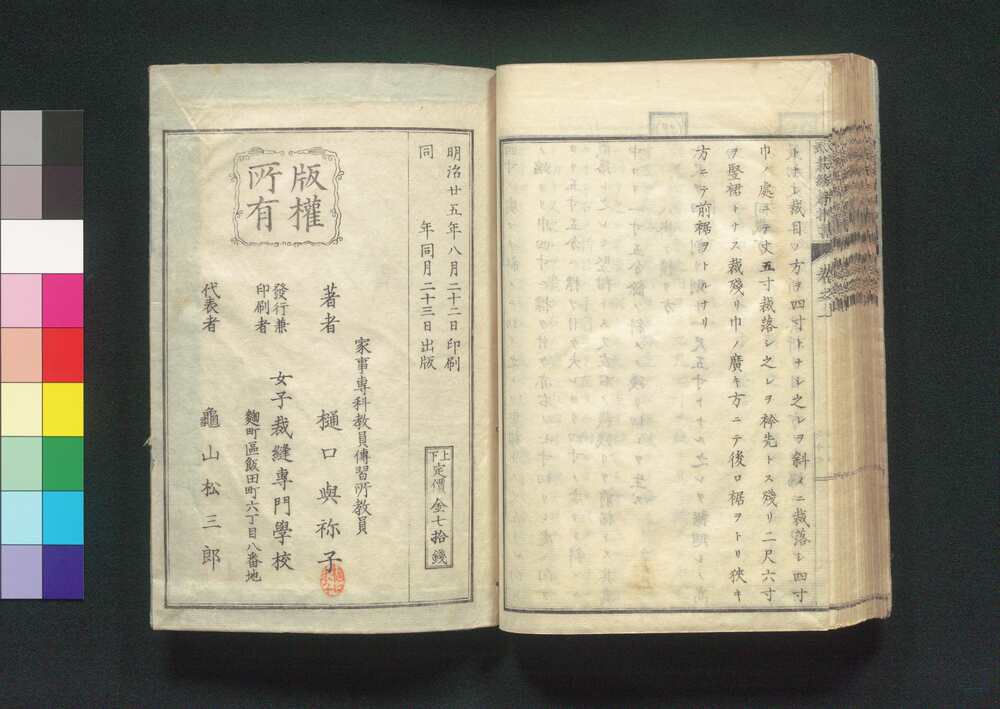 トナシ裁目ノ方ヲ四寸トナシ之レヲ斜メニ裁落シ四寸
巾ノ處ニテ丈五寸裁落シ之レヲ衿先トス殘リ二尺六寸
ヲ竪裙トナス裁殘リ巾ノ廣キ方ニテ後ロ裾ヲトリ狹キ
方ニテ前裾ヲトルナリ
明治廿五年八月二十二日印刷
同年同月二十三日出版
上下定價金七拾錢
版權所有
家事專科教員傳習所教員
著者 樋口與祢子
發行兼印刷者 女子裁縫專門學校
麴町區飯田町六丁目八番地
代表者 龜山松三郎